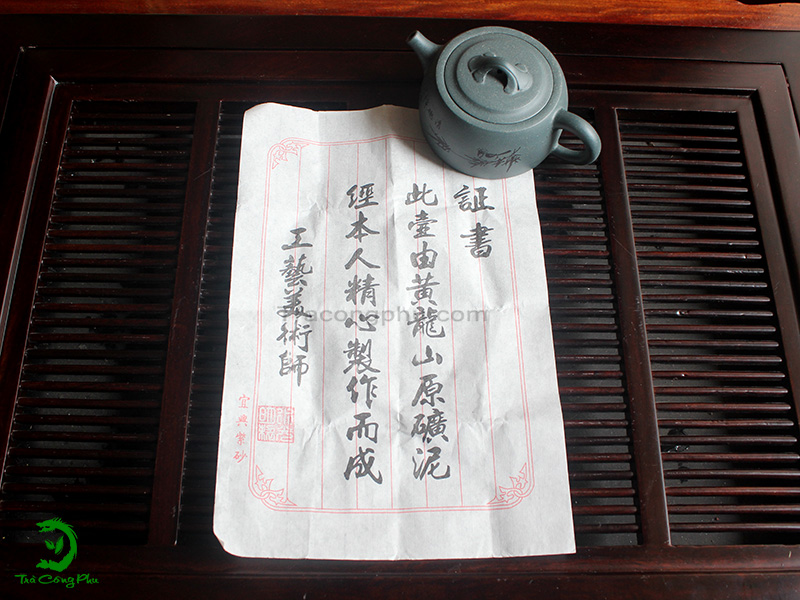 証書
此壺由黃龍山原礦泥
經本人精心製作而成
工藝美術師
宜興紫砂
aconaphu.com
Trà Công Phu